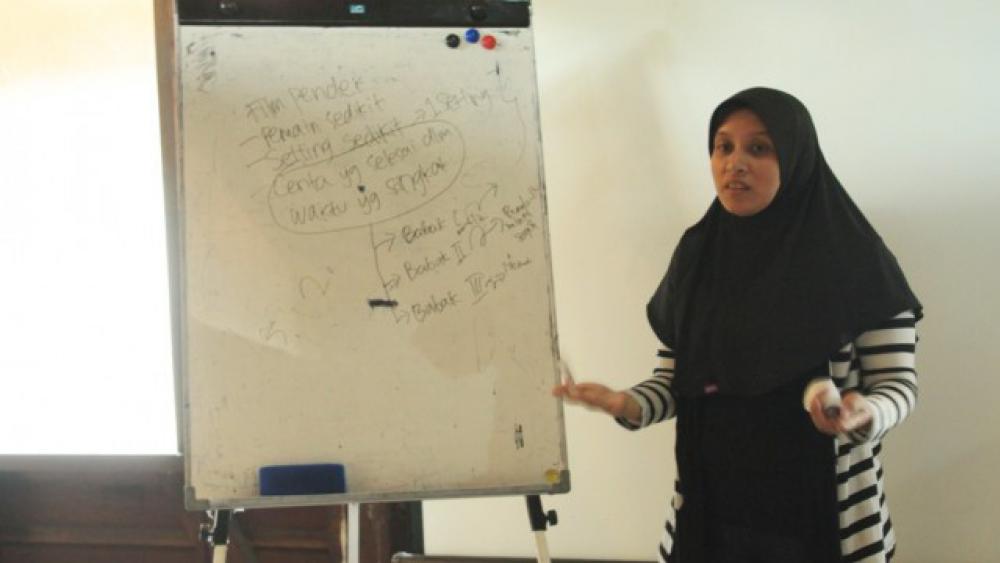 Film pendek
- Pemain sedikit
- Setting sedikit → 1 setting
Cerita yg selesai dlm
waktu yg singkat
→ Babak
→ Babak II
→ Babak III